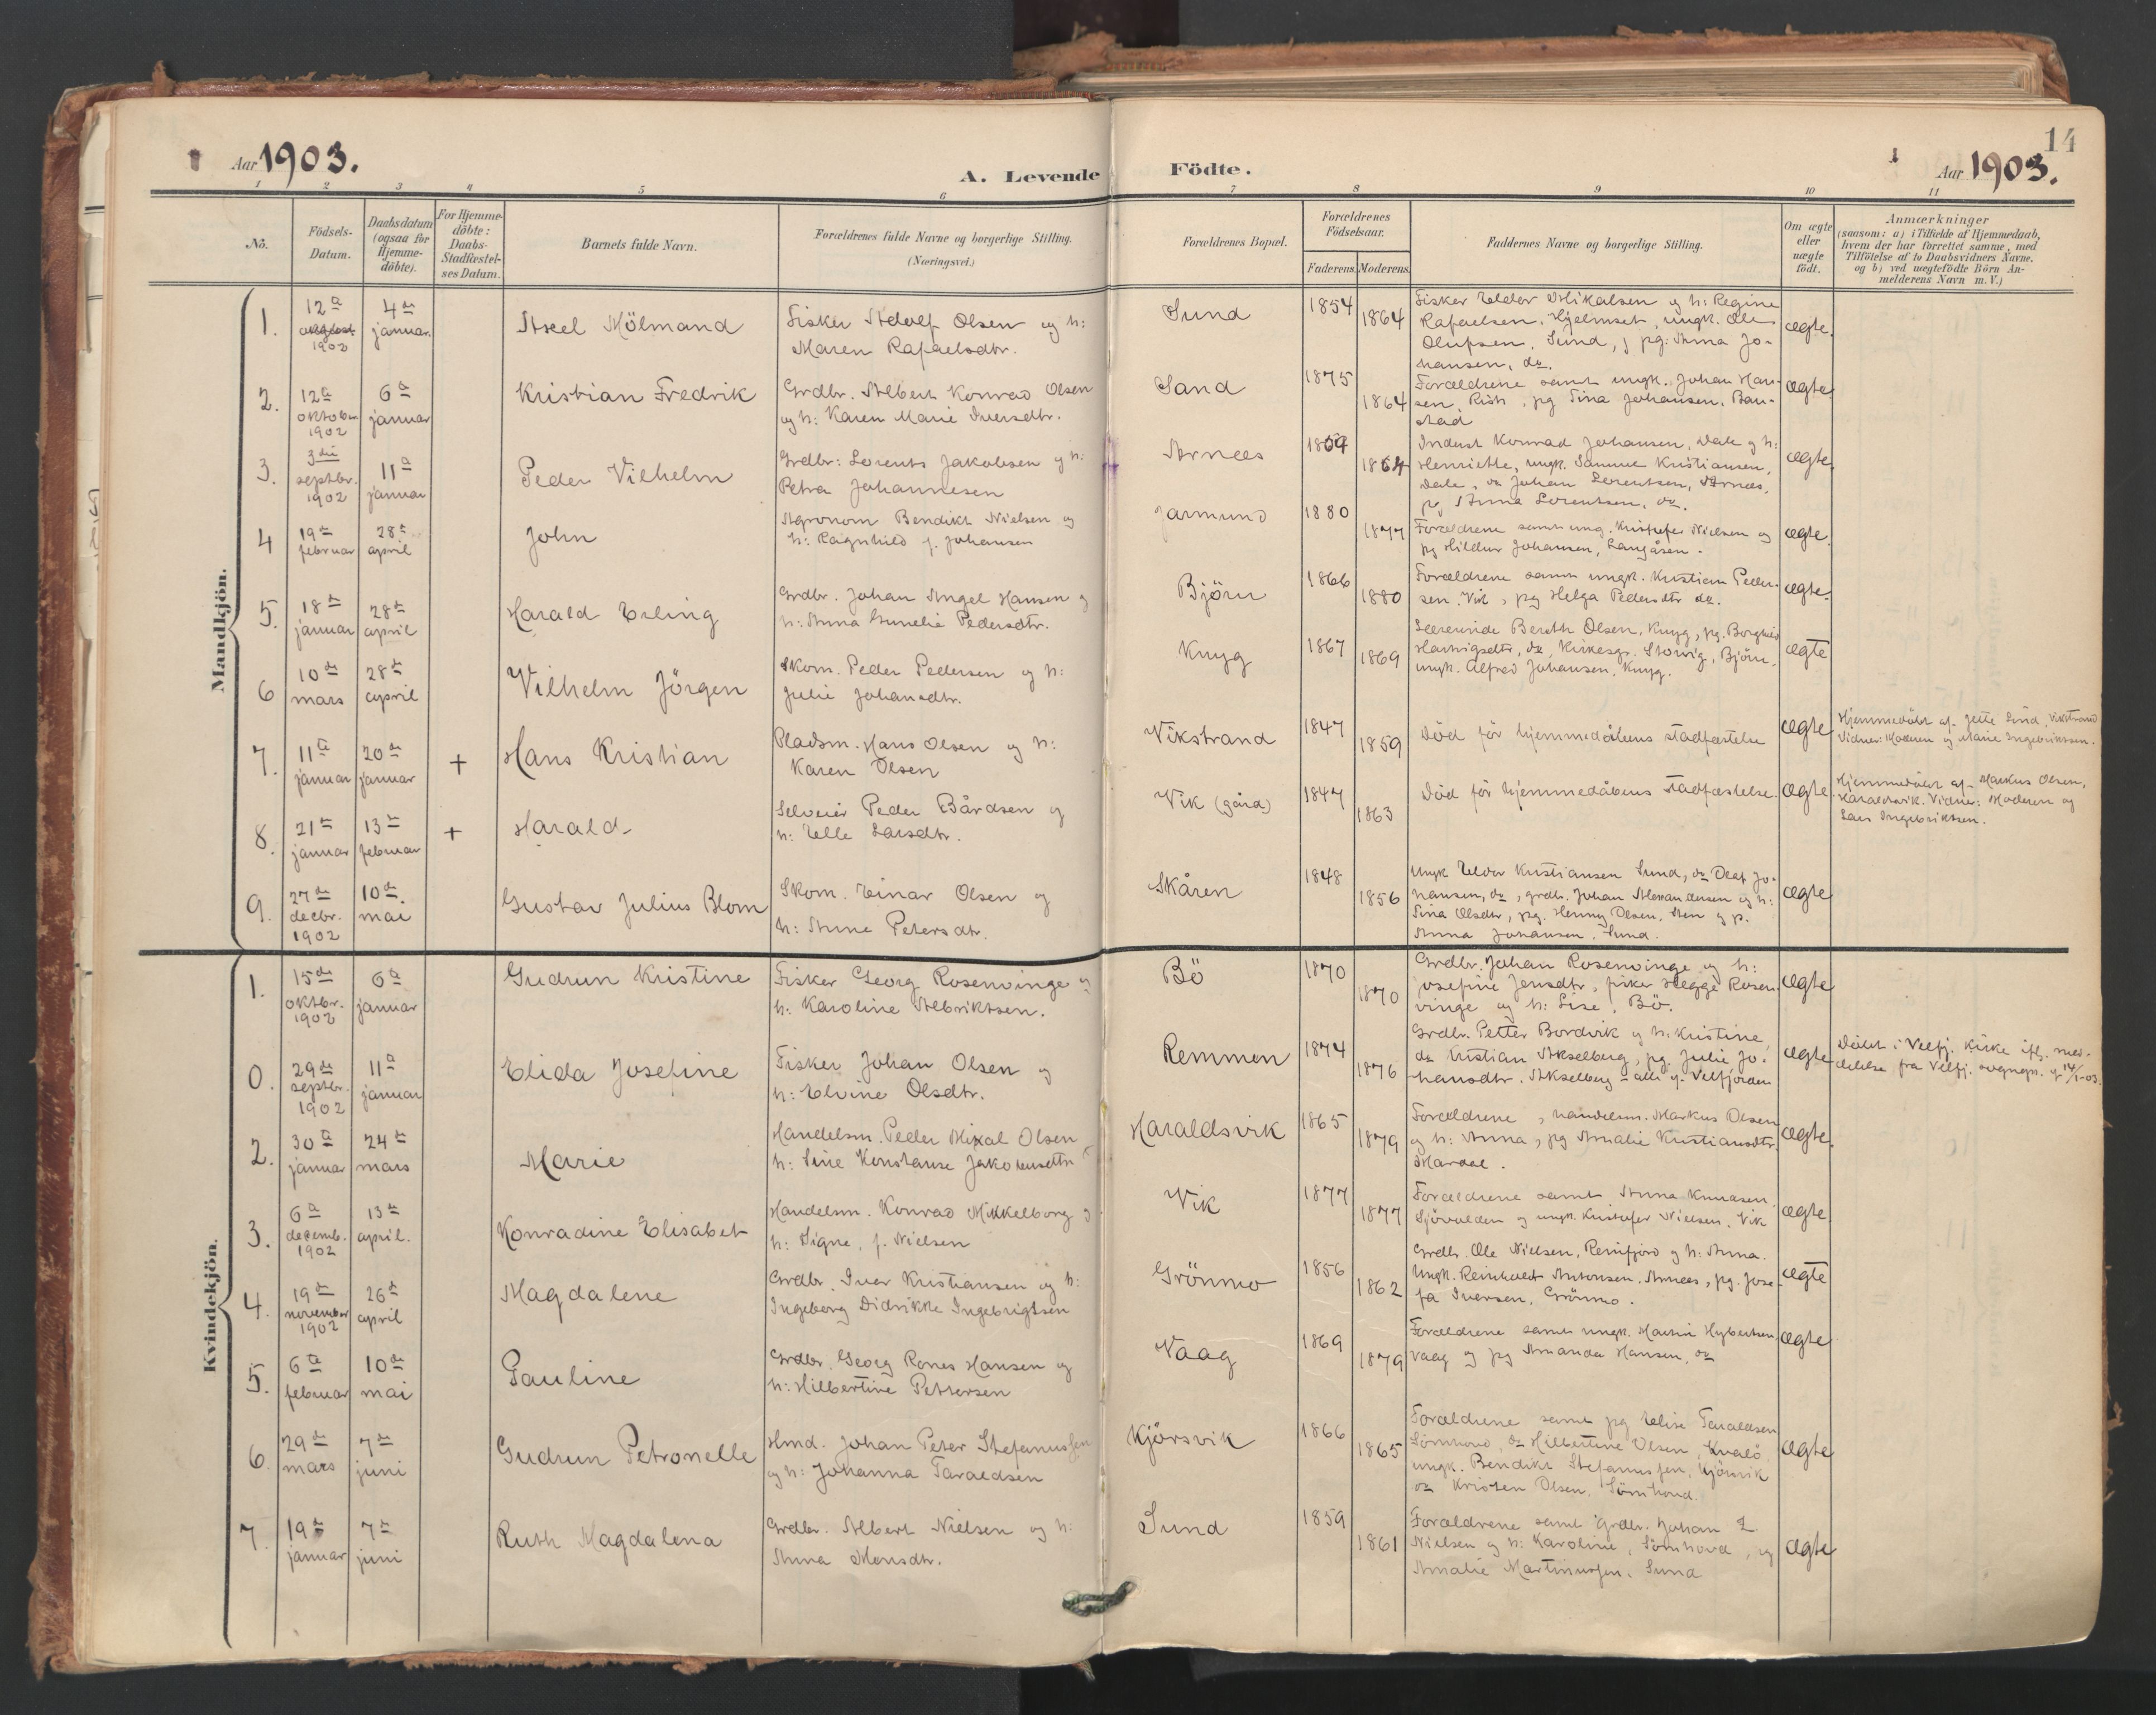 14
Aar 1903.
A. Levende Födte.
Aar 1903.
1 2 3 4 5 6 7 8 9 10 11
No.
Födsels-
Datum.
Daabsdatum
(ogsaa for
Hjemme-
döbte).
For Hjemme-
döbte:
Daabs-
Stadfæstel-
ses Datum.
Barnets fulde Navn.
Forældrenes fulde Navne og borgerlige Stilling.
(Næringsvei.)
Forældrenes Bopæl.
Forældrenes
Födselsaar.
Faderens. Moderens.
Faddernes Navne og borgerlige Stilling.
Om ægte
eller
uægte
födt.
Anmærkninger
(saasom: a) i Tilfælde af Hjemmedaab,
hvem der har forrettet samme, med
Tilföielse af to Daabsvidners Navne,
og b) ved uægtefödte Börn An-
melderens Navn m. V.)
Mandkjön.
1.
12te
august
1902
4de
januar.
Axel Mölmand
Fisker Adolf Olsen og h:
Maren Rafaelsdtr.
Sund
1854
1864
Fisker Eldor Mikalsen og h: Regine
Rafaelsen, Hjelmset, ungk. Ole
Olufsen, Sund, pg: Anna Jo-
hansen, do.
ægte.
2.
12te
oktober
1902
6te
januar
Kristian Fredrik
Grdbr. Albert Konrad Olsen
og h: Karen Marie Iversdtr.
Sand
1875
1864
Forældrene samt ungk. Johan Han-
sen, Rish, pg Tina Johansen, Bau-
stad
ægte
3.
3die
septbr.
1902
11te
januar
Peder Vilhelm
Grdbr: Lorents Jakobsen og h:
Petra Johannesen
Arnees
1859
1864
Indust Konrad Johansen, Dale og h:
Henriette, ungk. Samuel Kristiansen,
Dale, do Johan Lorentsen, Arnees,
pg Anna Lorentsen, do.
ægte.
4
19de
februar
28de
april
John
Agronom Bendikt Nielsen og
h: Ragnhild f. Johansen
Jarmund
1880
1877
Forældrene samt ung. Kristofer Nielsen og
pg Hildur Johansen, Langåsen.
ægte.
5.
18de
januar
28de
april
Harald Erling
Grdbr. Johan Angel Hansen og
h: Anna Gunelie Pedersdtr.
Björn
1866
1880
Forældrene samt ungk. Kristian Peder-
sen. Vik, pg Helga Pedersdtr do.
ægte.
6
10de
mars
28de
april
Vilhelm Jörgen
Skom. Peder Pedersen og h:
Julie Johansdtr.
Knyg
1867
1869
Lærerinde Berth Olsen, Knyg, pg. Borghild
Hartvigsdtr, do, Kirkesgr. Storvig, Björn,
ungk. Alfred Johansen, Knyg.
ægte
7.
11te
januar
20de
januar
+
Hans Kristian
Pladsm. Hans Olsen og h:
Karen Olsen
Vikstrand
1847
1859
Död för hjemmedåbens stadfæstelse
ægte
Hjemmedöbt af Jette Lind, Vikstrand
Vidner: Moderen og Marie Ingebriktsen.
8.
21de
januar
13de
februar
+
Harald
Selveier Peder Bårdsen og
h: Elle Larsdtr.
Vik (gård)
1847
1863
Död för hjemmedåbens stadfæstelse.
ægte
Hjemmedöbt af Markus Olsen,
Haraldsvik. Vidner: Moderen og
Lars Ingebriktsen.
9.
27de
decbr.
1902
10de.
mai
Gustav Julius Blom
Skom. Einar Olsen og
h: Anne Petersdtr.
Skåren
1848
1856
Ungk Eldor Kristiansen Sund, do Olaf Jo-
hansen, do, grdb. Johan Alexandersen og h:
Tina Olsdtr, pg. Henny Olsen, Sten og p.
Anna Johansen. Sund.
ægte
Kvindekjön.
1.
15de
oktbr.
1902
6te
januar
Gudrun Kristine
Fisker Georg Rosenvinge og
h: Karoline Albriktsen.
Bö
1870
1870
Grdbr. Johan Rosenvinge og h:
Josefine Jensdtr, fisker Hegge Rosen-
vinge og h: Lise, Bö.
ægte
0.
29de
septbr.
1902
11te
januar
Elida Josefine
Fisker Johan Olsen og
h: Elvine Olsdtr.
Remmen
1874
1876
Grdbr. Petter Bordvik og h: Kristine,
do Kristian Akselberg, pg. Julie Jo-
hansdtr. Akselberg – alle af Velfjorden
ægte
Döbt i Velfj. kirke ifg. med-
delelse fra Velfj. sogngp. af 14/1-03.
2.
30te
januar
24de
mars
Marie
Handelsm. Peder Mikal Olsen
h: Sine Konstanse Jakobsdtr
Haraldsvik
1865
1879
Forældrene, handelsm. Markus Olsen
og h: Anna, pg Amalie Kristiansdtr,
Mardal.
ægte.
3.
6te
decemb.
1902
13de
april.
Konradine Elisabet
Handelsm. Konrad Mikkelborg og
h: Signe, f. Nielsen
Vik
1877
1877
Forældrene samt Anna Knudsen
Sjövolden og ungk. Kristofer Nielsen. Vik
ægte
4.
19de
november
1902
26de
april
Magdalene
Grdbr. Iver Kristiansen og h:
Ingeborg Didrikke Ingebrigtsen
Grönmo
1856
1862
Grdbr. Ole Nielsen, Remfjord og h: Anna.
Ungk. Reinholdt Antonsen. Arnees, pg. Jose-
fa Iversen, Grönmo.
ægte
5.
6te
februar
10de
mai
Pauline
Grdbr. Georg Rones Hansen og
h: Hilbertine Pettersen
Vaag
1869
1879
Forældrene samt ungk. Martin Hybertsen,
Vaag og pg Amanda Hansen, do
ægte
6.
29de
mars
7de
juni
Gudrun Petronelle
Hmd. Johan Peter Stefanussen
og h: Johanna Taraldsen
Kjörsvik
1866
1865
Forældrene samt pg Elise Taraldsen
Sömhovd, do Hilbertine Olsen, Kvalö,
ungk. Bendikt Stefanussen, Kjörsvik
do Kristen Olsen, Sömhovd.
ægte
7.
19de
januar
7de
juni
Ruth Magdalena
Grdbr. Albert Nielsen og h:
Anna Monsdtr.
Sund
1859
1861
Forældrene samt grdbr. Johan Z
Nielsen og h: Karoline, Sömhovd, og
Amalie Martinussen, Sund
ægte